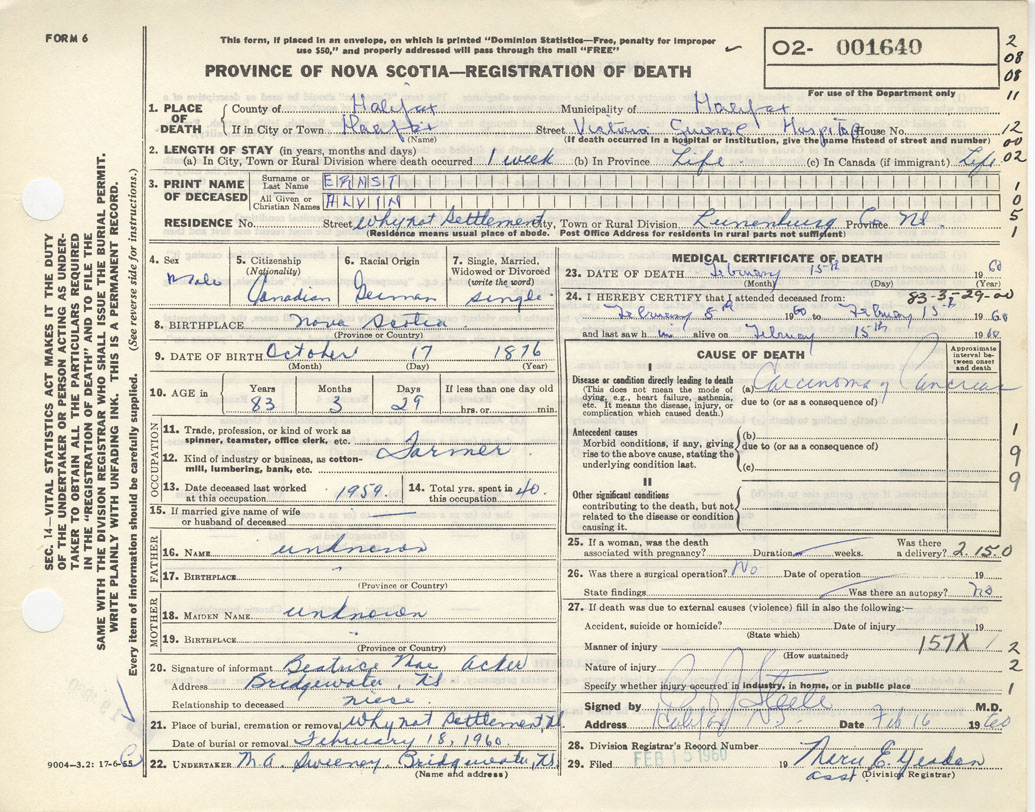 FORM 6
This form, if placed in an envelope, on which is printed "Dominion Statistics—Free, penalty for improper
use $50," and properly addressed will pass through the mail "FREE"
O2- 001640
PROVINCE OF NOVA SCOTIA—REGISTRATION OF DEATH
For use of the Department only
2
08
08
11
12
00
02
1
0
5
1
1. PLACE OF DEATH
County of Halifax Municipality of Halifax
If in City or Town Halifax Street Victoria General Hospital House No.
(Name) (If death occurred in a hospital or institution, give the name instead of street and number)
2. LENGTH OF STAY (in years, months and days)
(a) In City, Town or Rural Division where death occurred 1 week (b) In Province Life (c) In Canada (if immigrant) Life
3. PRINT NAME OF DECEASED
Surname or Last Name ERNST
All Given or Christian Names ALVIN
RESIDENCE No. Street Whynot Settlement City, Town or Rural Division Lunenburg Co. Province NS.
(Residence means usual place of abode. Post Office Address for residents in rural parts not sufficient)
4. Sex
Male
5. Citizenship
(Nationality)
Canadian
6. Racial Origin
German
7. Single, Married,
Widowed or Divorced
(write the word)
single
8. BIRTHPLACE Nova Scotia
(Province or Country)
9. DATE OF BIRTH October 17 1876
(Month) (Day) (Year)
10. AGE in
Years Months Days If less than one day old
83 3 29 hrs. or min.
OCCUPATION
11. Trade, profession, or kind of work as
spinner, teamster, office clerk, etc.
Farmer
12. Kind of industry or business, as cotton-
mill, lumbering, bank, etc.
13. Date deceased last worked
at this occupation 1959.
14. Total yrs. spent
in this occupation 40.
15. If married give name of wife
or husband of deceased
FATHER
16. NAME unknown
17. BIRTHPLACE "
(Province or Country)
MOTHER
18. MAIDEN NAME unknown
19. BIRTHPLACE "
(Province or Country)
20. Signature of informant Beatrice Mae Acker
Address Bridgewater, NS
Relationship to deceased niece.
21. Place of burial, cremation or removal Whynot Settlement, NS
Date of burial or removal February 18, 1960.
22. UNDERTAKER M.A. Sweeney, Bridgewater, NS.
(Name and address)
MEDICAL CERTIFICATE OF DEATH
23. DATE OF DEATH February 15th 1960
(Month) (Day)
24. I HEREBY CERTIFY that I attended deceased from: 83-3-29-00
February 8th 1960 to February 15th 1960
and last saw him alive on February 15th 1960
CAUSE OF DEATH
Approximate
interval be-
tween onset
and death
I
Disease or condition directly leading to death
(This does not mean the mode of
dying, e.g., heart failure, asthenia,
etc. It means the disease, injury, or
complication which caused death.)
(a) Carcinoma of Pancreas
due to (or as a consequence of)
Antecedent causes
Morbid conditions, if any, giving
rise to the above cause, stating the
underlying condition last.
(b)
due to (or as a consequence of)
(c)
1
9
9
II
Other significant conditions
contributing to the death, but not
related to the disease or condition
causing it.
25. If a woman, was the death
associated with pregnancy? Duration weeks. Was there
a delivery? 2 15 0
26. Was there a surgical operation? No Date of operation 19
State findings Was there an autopsy? no
27. If death was due to external causes (violence) fill in also the following:—
Accident, suicide or homicide? Date of injury 19
(State which)
Manner of injury 157X
(How sustained)
Nature of injury
2
2
Specify whether injury occurred in industry, in home, or in public place 1
Signed by Steele M.D.
Address Halifax N.S. Date Feb 16 1960
28. Division Registrar's Record Number
29. Filed FEB 15 1960 19
asst (Division Registrar)
SEC. 14—VITAL STATISTICS ACT MAKES IT THE DUTY
OF THE UNDERTAKER OR PERSON ACTING AS UNDER-
TAKER TO OBTAIN ALL THE PARTICULARS REQUIRED
IN THE "REGISTRATION OF DEATH" AND TO FILE THE
SAME WITH THE DIVISION REGISTRAR WHO SHALL ISSUE THE BURIAL PERMIT.
WRITE PLAINLY WITH UNFADING INK. THIS IS A PERMANENT RECORD.
Every item of information should be carefully supplied. (See reverse side for instructions.)
9004-3.2: 17-6-55